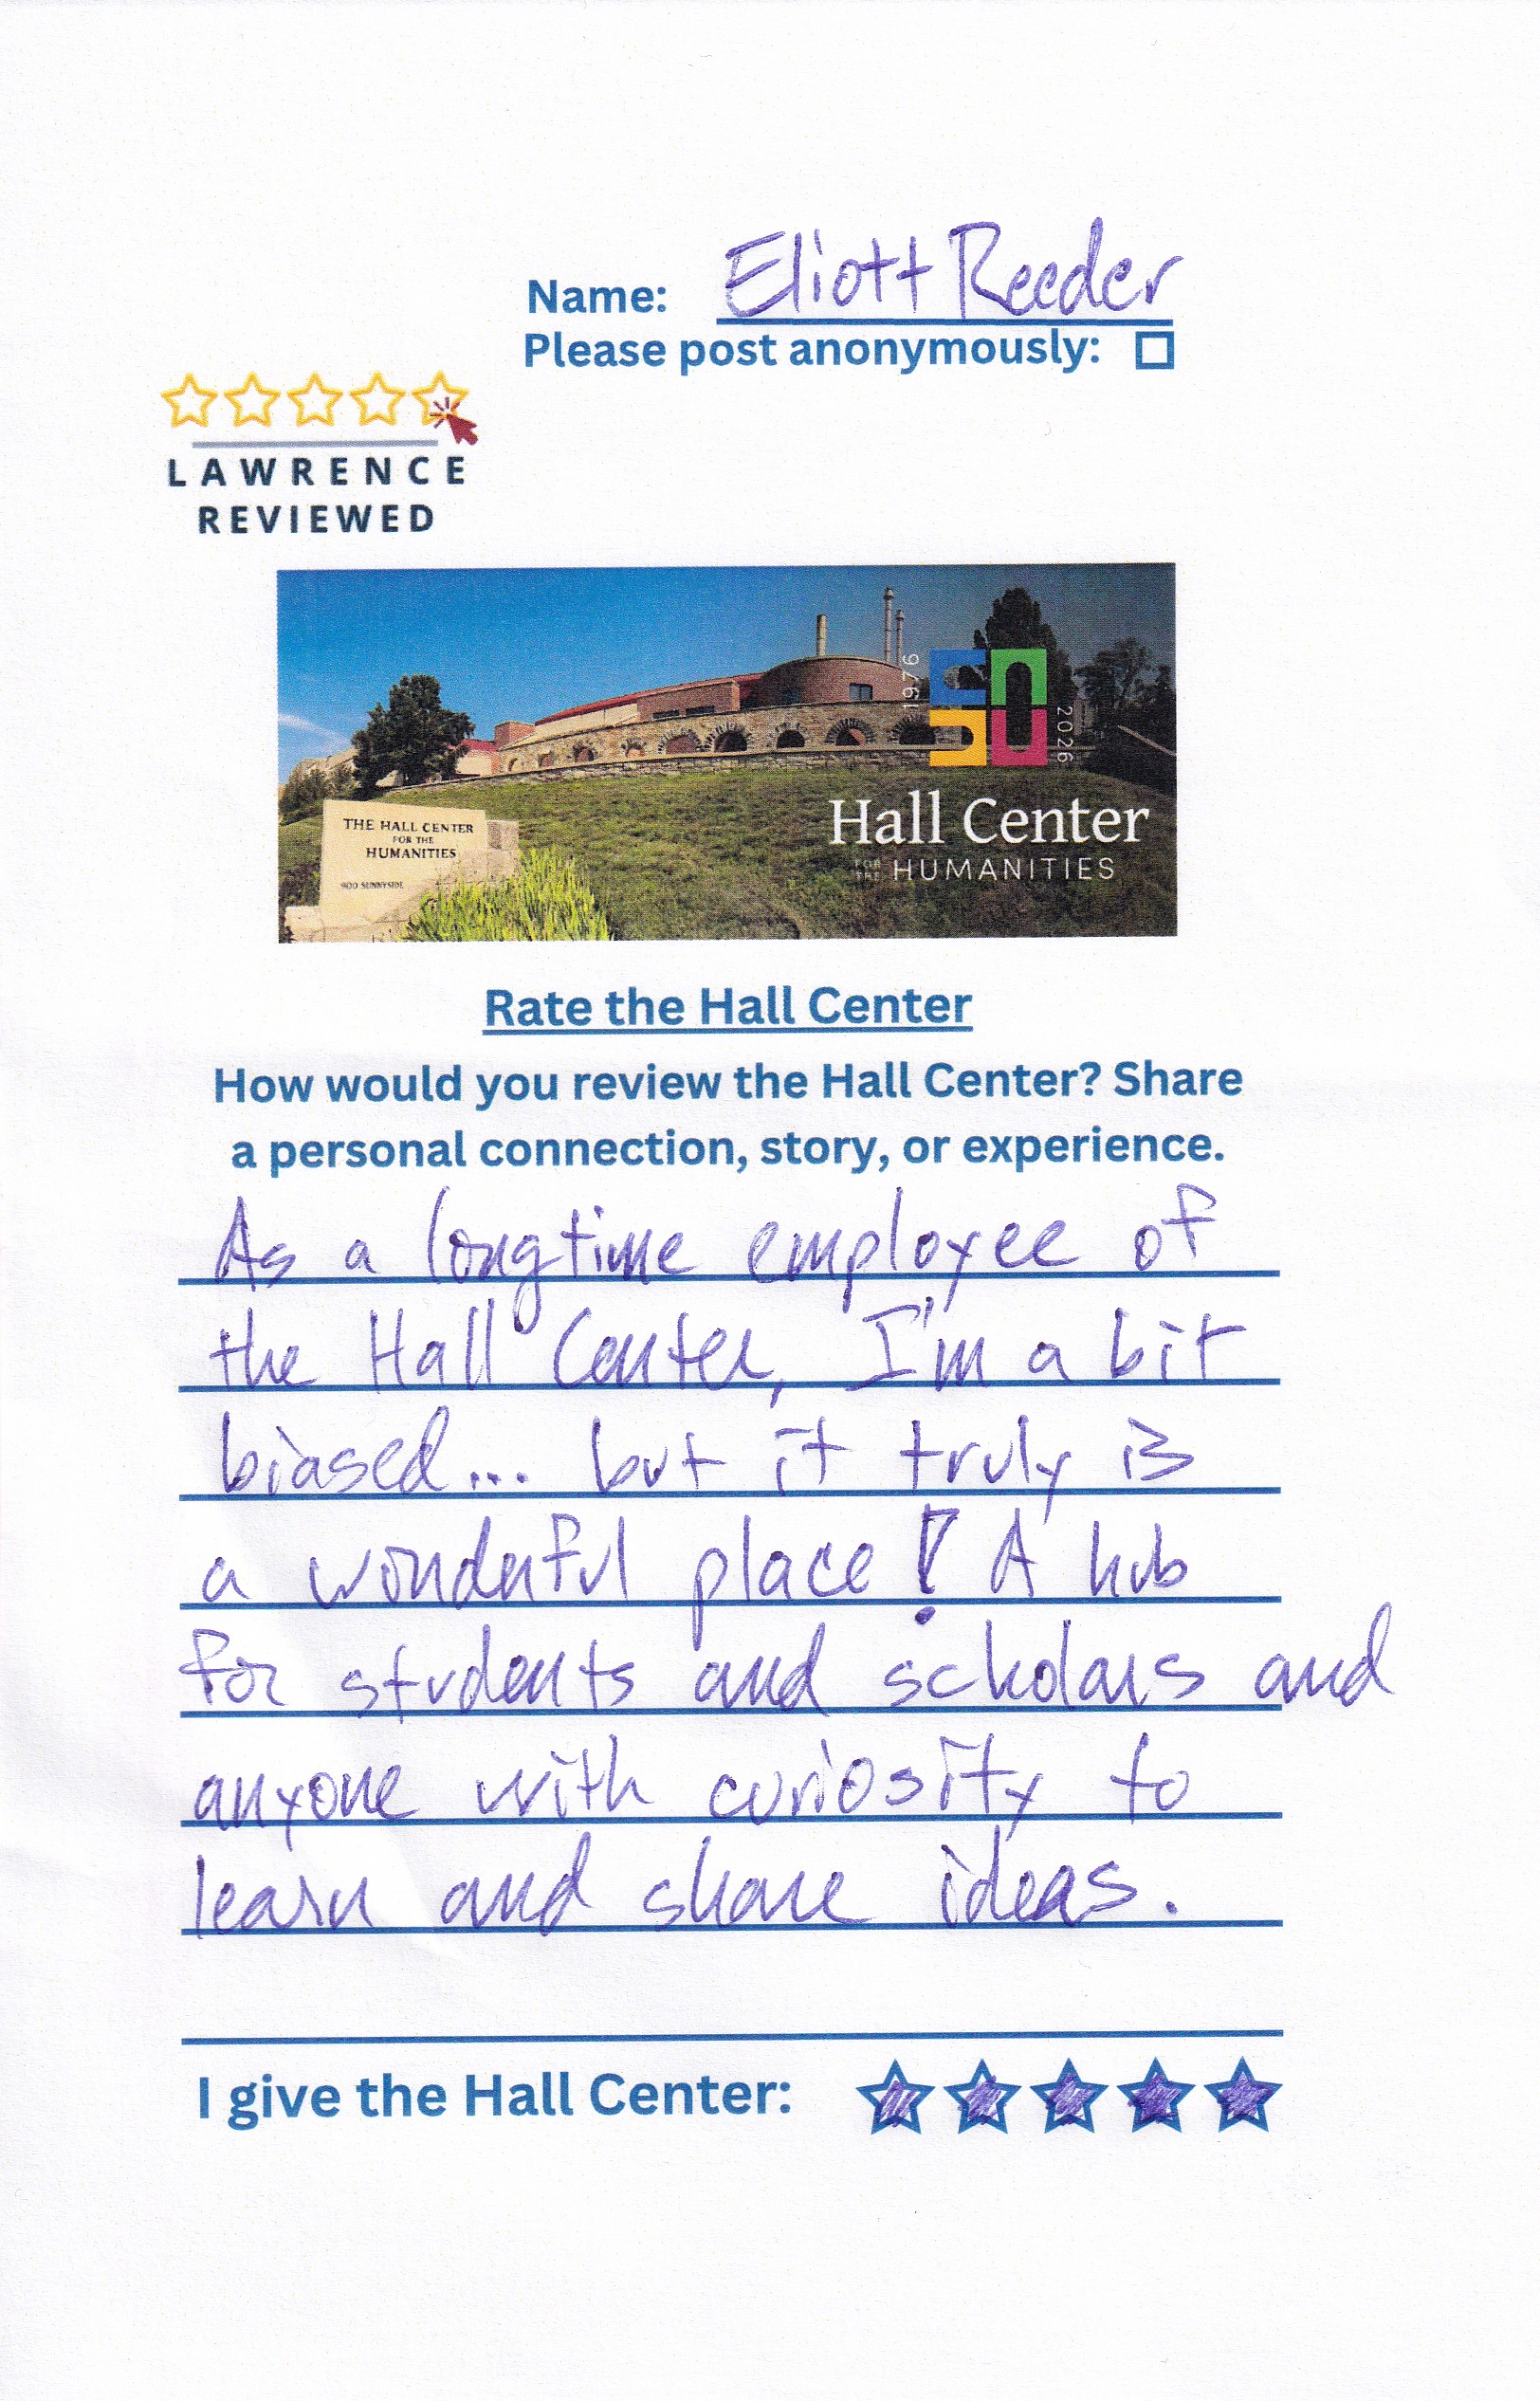 Name: Eliott Reeder
Please post anonymously:
LAWRENCE
REVIEWED
1976
50
2026
THE HALL CENTER
FOR THE
HUMANITIES
900 SUNNYSIDE
Hall Center
FOR THE HUMANITIES
Rate the Hall Center
How would you review the Hall Center? Share
a personal connection, story, or experience.
As a longtime employee of
the Hall Center, I'm a bit
biased... but it truly is
a wonderful place! A hub
for students and scholars and
anyone with curiosity to
learn and share ideas.
I give the Hall Center: